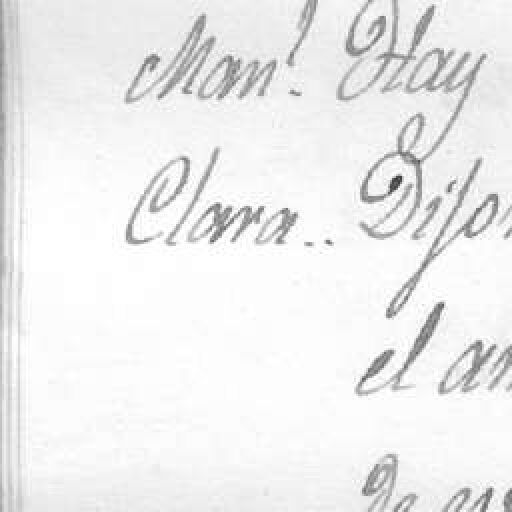 Man.l Hay
Clara.. Dijo
el
De